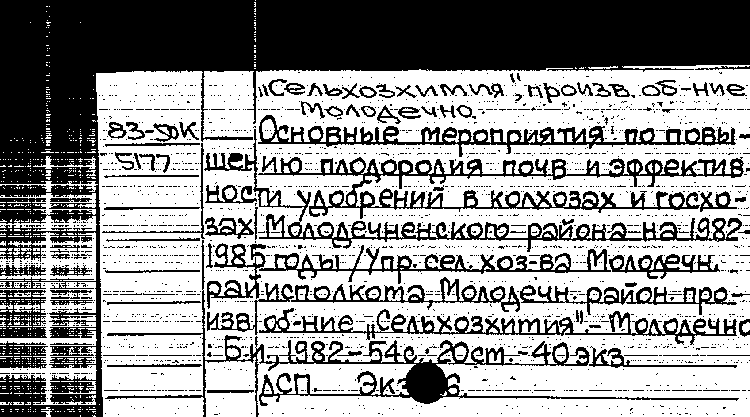 „Сельхозхимия", произв. об-ние
Молодечно.
83-50К Основные мероприятия по повы-
5177 шению плодородия почв и эффектив-
ности удобрений в колхозах и госхо-
зах Молодечненского района на 1982-
1985 годы / Упр. сел. хоз-ва Молодечн.
райисполкома, Молодечн. район. про-
изв. об-ние „Сельхозхимия". - Молодечно
: Б.и., 1982. - 54 с. : 20 см. - 40 экз.
ДСП.